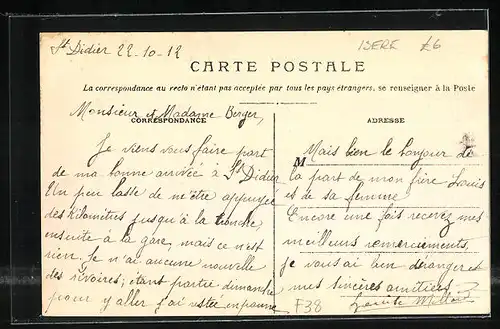 St Didier 22-10-12
ISERE £6
CARTE POSTALE
La correspondance au recto n'étant pas acceptée par tous les pays étrangers, se renseigner à la Poste
Monsieur et Madame Berger,
CORRESPONDANCE
Je viens vous faire part
de ma bonne arrivée à St Didier
Un peu lasse de m'être appuyée
des kilomètres jusqu'à la tronche
ensuite à la gare, mais ce n'est
rien. Je n'ai aucune nouvelle
des Rivoires; étant partie dimanche
pour y aller j'ai restée en panne
ADRESSE
M
Mais bien le bonjour de
la part de mon frère Louis
et de sa femme
Encore une fois recevez mes
meilleurs remerciements,
je vous ai bien dérangé et
mes sincères amitiés
F38